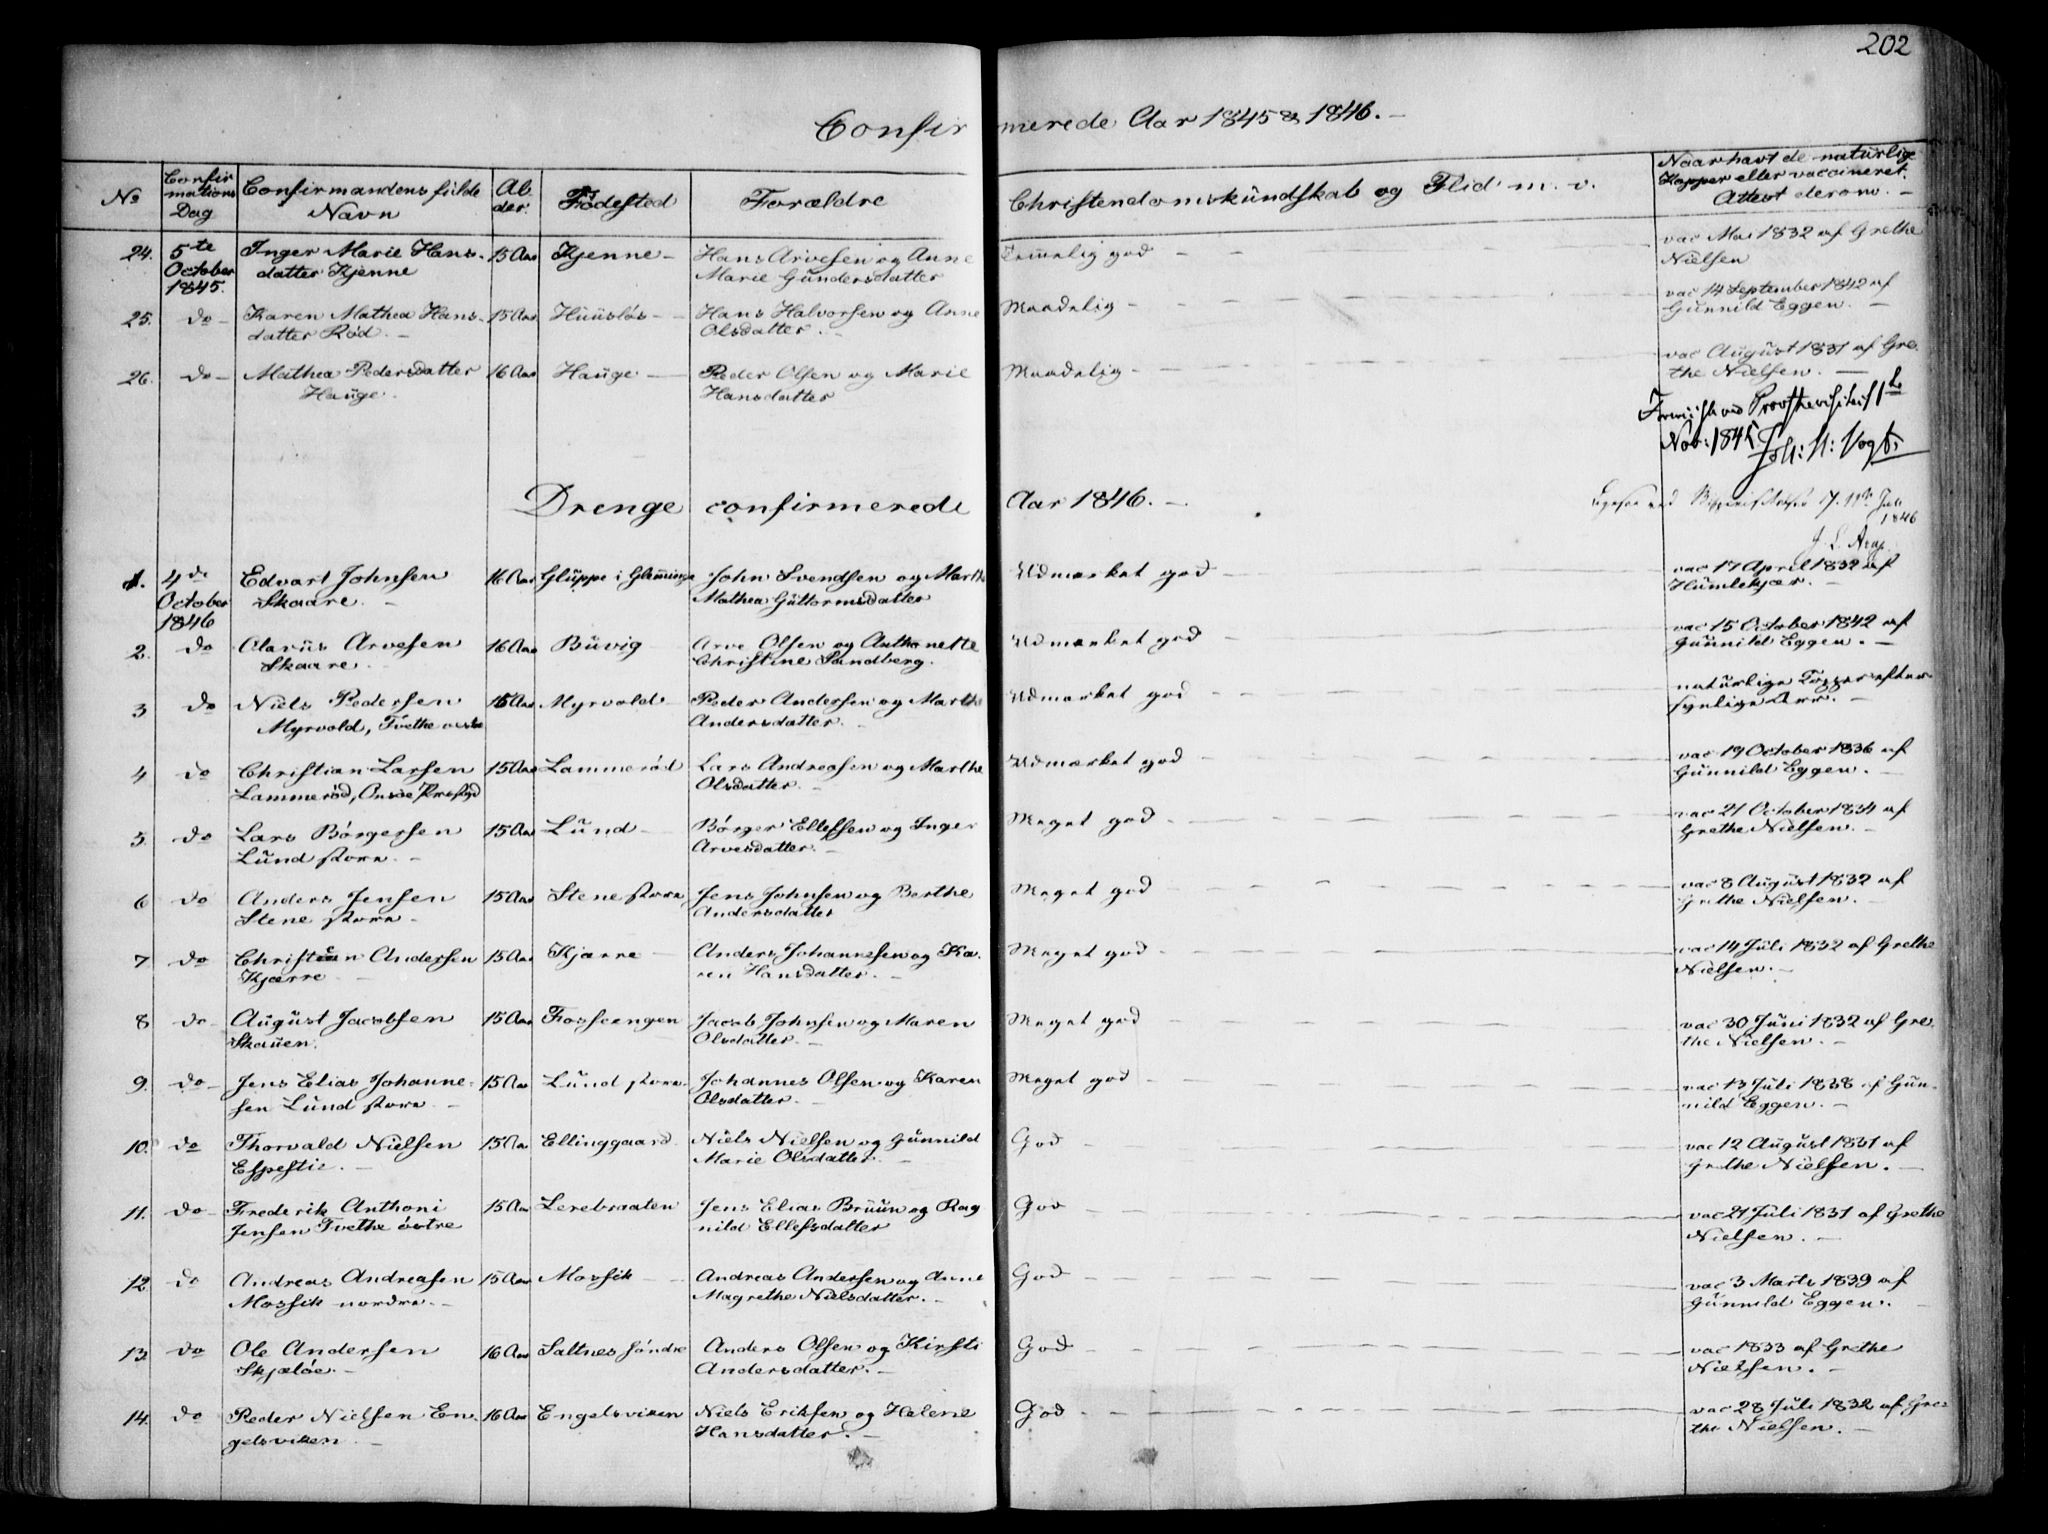 202
Confirmerede Aar 1845 & 1846. –
No
Confirmations Dag
Confirmandens fulde Navn
Alder.
Födested
Forældre
Christendomskundskab og Flid m. v.
Naar havt de naturlige Kopper eller vaccineret. Attest derom. –
24. 5te Inger Marie Hans- 15 Aar Kjenne – Hans Arvesen og Anne Temmelig god – vac Mai 1832 af Grethe
October datter Kjenne Marie Gundersdatter Nielsen
1845.
25. do – Karen Mathea Hans- 15 Aar Huuslös – Hans Halvorsen og Anne Maadelig – vac 14 September 1842 af
datter Röd. – Olsdatter. – Gunnild Eggen. –
26. do – Mathea Pedersdatter 16 Aar Hauge – Peder Olsen og Marie Maadelig – vac August 1831 af Gre-
Hauge. Hansdatter the Nielsen. –
Provstevisitats 1ste
Nov: 1845 Joh: N: Vogt
Drenge confirmerede Aar 1846. –
Juli
1846
1. 4de Edvart Johnsen 16 Aar Gluppe i Glemminge John Svendsen og Marthe Udmærket god – vac 17 April 1832 af
October Skaare. – Mathea Guttormsdatter Humlekjær. –
1846
2. do Olavus Arvesen 16 Aar Buvig Arve Olsen og Anthonette Udmærket god – vac 15 October 1842 af
Skaare. Christine Sandberg. Gunnild Eggen. –
3 do Niels Pedersen 15 Aar Myrvold Peder Andersen og Marthe Udmærket god – naturlige Kopper efter
Myrvold, Tvethe Andersdatter. synlige Arr. –
4 do Christian Larsen 15 Aar Lammeröd Lars Andreasen og Marthe Udmærket god – vac 19 October 1836 af
Lammeröd, Onsøe Olsdatter. – Gunnild Eggen. –
5. do Lars Börgersen 15 Aar Lund – Börger Ellefsen og Inger Meget god – vac 21 October 1834 af
Lund store. – Arvesdatter. – Grethe Nielsen. –
6 do Anders Jensen 15 Aar Stene store Jens Johnsen og Berthe Meget god – vac 8 August 1832 af
Stene store. Andersdatter Grethe Nielsen. –
7 do Christian Andersen 15 Aar Kjærre – Anders Johannesen og Ka- Meget god – vac 14 Juli 1832 af Grethe
Kjærre – ren Hansdatter. – Nielsen. –
8 do – August Jacobsen 15 Aar Fosseengen Jacob Johnsen og Maren Meget god – vac 30 Juni 1832 af Gre-
Skauen. Olsdatter. – the Nielsen. –
9. do – Jens Elias Johanne- 15 Aar Lund store. Johannes Olsen og Karen Meget god – vac 13 Juli 1838 af Gun-
sen Lund store. – Olsdatter. – nild Eggen. –
10. do Thorvald Nielsen 15 Aar Ellinggaard. Niels Nielsen og Gunnild God – vac 12 August 1831 af
Espestie. – Marie Olsdatter. – Grethe Nielsen. –
11. do – Frederik Anthoni 15 Aar Lerebraaten Jens Elias Bruun og Rag God – vac 21 Juli 1831 af Grethe
Jensen Tvethe östre nild Ellefsdatter Nielsen. –
12. do Andreas Andreasen 15 Aar Mossik – Andreas Andersen og Anne God – vac 3 Marts 1839 af
Mossik nordre. – Magrethe Nielsdatter. – Gunnild Eggen. –
13. do Ole Andersen 16 Aar Saltnes söndre Anders Olsen og Kirsti God – vac 1833 af Grethe
Skjælöe. – Andersdatter. – Nielsen. –
14. do Peder Nielsen En- 16 Aar Engelsviken Niels Eriksen og Helene God – vac 28 Juli 1832 af Gre-
gelsviken. – Hansdatter. – the Nielsen. –